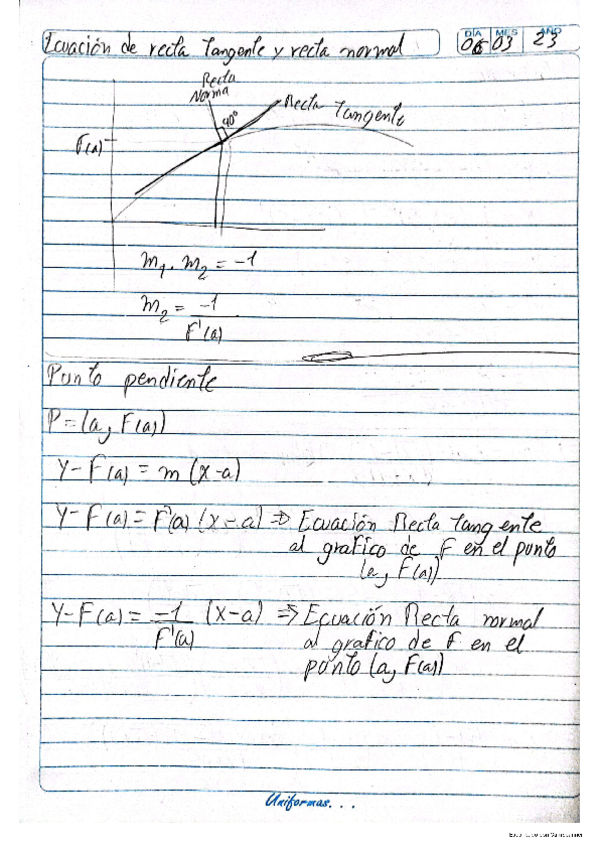 Ecuación de recta tangente y recta normal
DÍA MES AÑO
06 03 23
Recta
Norma
90°
Recta Tangente
F(a)
m₁ . m₂ = -1
m₂ = -1
F'(a)
Punto pendiente
P = (a, F(a))
Y - F(a) = m (x-a)
Y - F(a) = F'(a) (x-a) ⇒ Ecuación Recta tangente
al grafico de F en el punto
(a, F(a))
Y - F(a) = -1 (x-a) ⇒ Ecuación Recta normal
F'(a) al grafico de F en el
punto (a, F(a))
Uniformas...